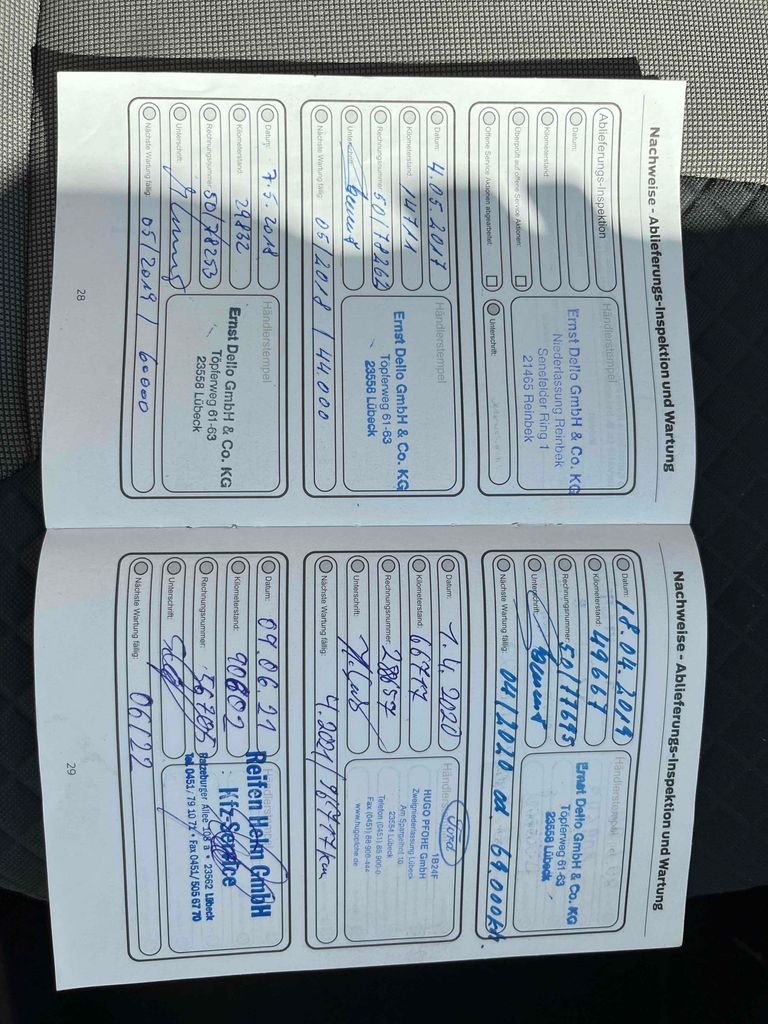 Nachweise - Ablieferungs-Inspektion und Wartung
Ablieferungs-Inspektion
Datum:
Kilometerstand:
Überprüft auf offene Service Aktionen:
Offene Service Aktionen abgearbeitet:
Händlerstempel
Ernst Dello GmbH & Co. KG
Niederlassung Reinbek
Senefelder Ring 1
21465 Reinbek
Unterschrift:
Datum: 4.05.2017
Kilometerstand: 14711
Rechnungsnummer: 50/78262
Unterschrift:
Nächste Wartung fällig: 05/2018 / 44.000
Händlerstempel
Ernst Dello GmbH & Co. KG
Töpferweg 61-63
23558 Lübeck
Datum: 7.5.2018
Kilometerstand: 29832
Rechnungsnummer: 50/78253
Unterschrift:
Nächste Wartung fällig: 05/2019 / 60000
Händlerstempel
Ernst Dello GmbH & Co. KG
Töpferweg 61-63
23558 Lübeck
28
Nachweise - Ablieferungs-Inspektion und Wartung
Datum: 18.04.2019
Kilometerstand: 49667
Rechnungsnummer: 50/77695
Unterschrift:
Nächste Wartung fällig: 04/2020 od 69.000
Händlerstempel
Ernst Dello GmbH & Co. KG
Töpferweg 61-63
23558 Lübeck
Datum: 1.4.2020
Kilometerstand: 66717
Rechnungsnummer: 28057
Unterschrift:
Nächste Wartung fällig: 4.2021/ 86717km
Ford
1B24F
HUGO PFOHE GmbH
Zweigniederlassung Lübeck
Am Spargelhof 10
23554 Lübeck
Telefon (0451) 88 906-0
Fax (0451) 88 906-444
www.hugopfohe.de
Datum: 09.06.21
Kilometerstand: 90602
Rechnungsnummer: 56705
Unterschrift:
Nächste Wartung fällig: 06/22
Reifen Helm GmbH
Kfz-Service
Ratzeburger Allee 108 a • 23562 Lübeck
Tel. 0451/ 79 10 71 • Fax 0451/ 505 67 70
29